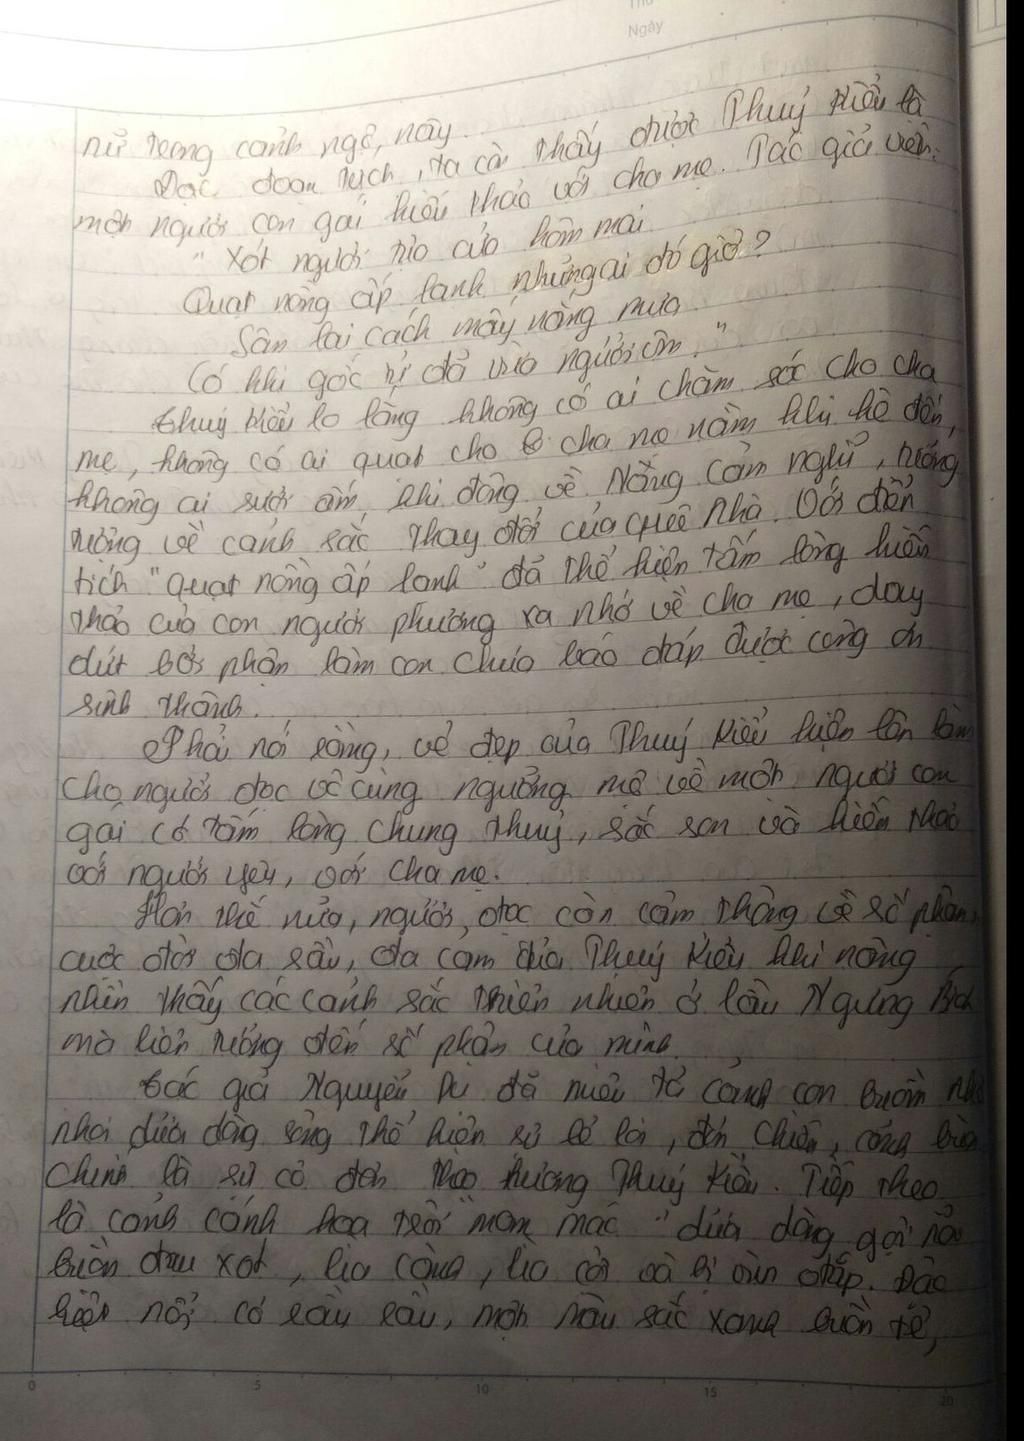 Ngày
nữ trong cảnh ngộ này.
Đọc đoạn trích, ta còn thấy được Thuý Kiều là
một người con gái hiếu thảo với cha mẹ. Tác giả viết:
" Xót người tựa cửa hôm mai
Quạt nồng ấp lạnh những ai đó giờ?
Sân lai cách mấy nắng mưa
Có khi gốc tử đã vừa người ôm."
Thuý Kiều lo lắng không có ai chăm sóc cho cha
mẹ, không có ai quạt cho cha mẹ nằm khi hè đến,
không ai sưởi ấm khi đông về. Nàng cảm nghĩ, tưởng
tượng về cảnh sắc thay đổi của quê nhà. Với điển
tích "quạt nồng ấp lạnh" đã thể hiện tấm lòng hiếu
thảo của con người phương xa nhớ về cha mẹ, day
dứt bởi phận làm con chưa báo đáp được công ơn
sinh thành.
Phải nói rằng, vẻ đẹp của Thuý Kiều hiện lên làm
cho người đọc vô cùng ngưỡng mộ về một người con
gái có tấm lòng chung thuỷ, sắc son và hiếu thảo
với người yêu, với cha mẹ.
Hơn thế nữa, người đọc còn cảm thông về số phận,
cuộc đời đa sầu, đa cảm của Thuý Kiều khi nàng
nhìn thấy các cảnh sắc thiên nhiên ở lầu Ngưng Bích
mà liên tưởng đến số phận của mình.
Tác giả Nguyễn Du đã miêu tả cánh con buồm nhỏ
nhoi giữa dòng sông thể hiện sự lẻ loi, đơn chiếc, cánh buồm
chính là sự cô đơn tha hương Thuý Kiều. Tiếp theo
là cảnh cánh hoa trôi "man mác" giữa dòng gợi nỗi
buồn đau xót, và bị vùi dập. Đặc
biệt nội cỏ rầu rầu, một màu sắc xanh buồn tẻ,
0 5 10 15 20